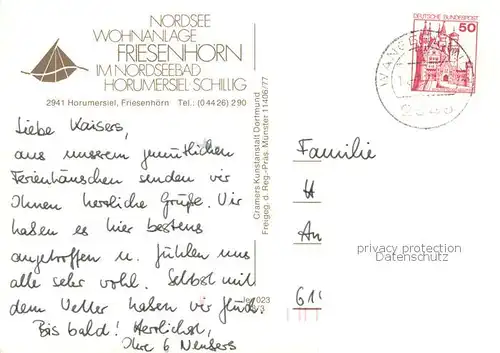 NORDSEE
WOHNANLAGE
FRIESENHÖRN
IM NORDSEEBAD
HORUMERSIEL SCHILLIG
2941 Horumersiel, Friesenhörn Tel.: (04426) 290
DEUTSCHE BUNDESPOST
50
Liebe Kaisers,
aus unserem gemütlichen
Ferienhäuschen senden wir
Ihnen herzliche Grüße. Wir
haben es hier bestens
angetroffen u. fühlen uns
alle sehr wohl. Selbst mit
dem Wetter haben wir Glück.
Bis bald! Herzlichst,
Ihre 6
Cramers Kunstanstalt Dortmund
Freigeg. d. Reg.-Präs. Münster 11406/77
Familie
H
An
privacy protection
Datenschutz